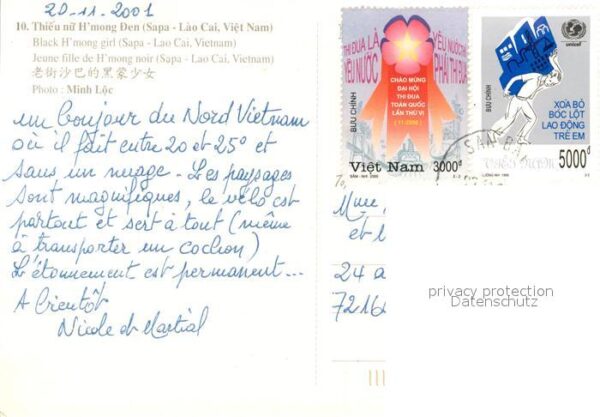 20-11-2001
10. Thiếu nữ H'mong Đen (Sapa - Lào Cai, Việt Nam)
Black H'mong girl (Sapa - Lao Cai, Vietnam)
Jeune fille de H'mong noir (Sapa - Lao Cai, Vietnam)
老街沙巴的黑蒙少女
Photo : Minh Lộc
un bonjour du Nord Vietnam
où il fait entre 20 et 25° et
sans un nuage - Les paysages
sont magnifiques, le vélo est
partout et sert à tout (même
à transporter un cochon)
L'étonnement est permanent...
A Bientôt
Nicole et Martial
THI ĐUA LÀ YÊU NƯỚC
YÊU NƯỚC THÌ PHẢI THI ĐUA
CHÀO MỪNG
ĐẠI HỘI
THI ĐUA
TOÀN QUỐC
LẦN THỨ VI
(11-2000)
BƯU CHÍNH
Việt Nam 3000đ
2-2
unicef
BƯU CHÍNH
XOÁ BỎ
BÓC LỘT
LAO ĐỘNG
TRẺ EM
5000đ
Mme
et
24 a
72160
privacy protection
Datenschutz